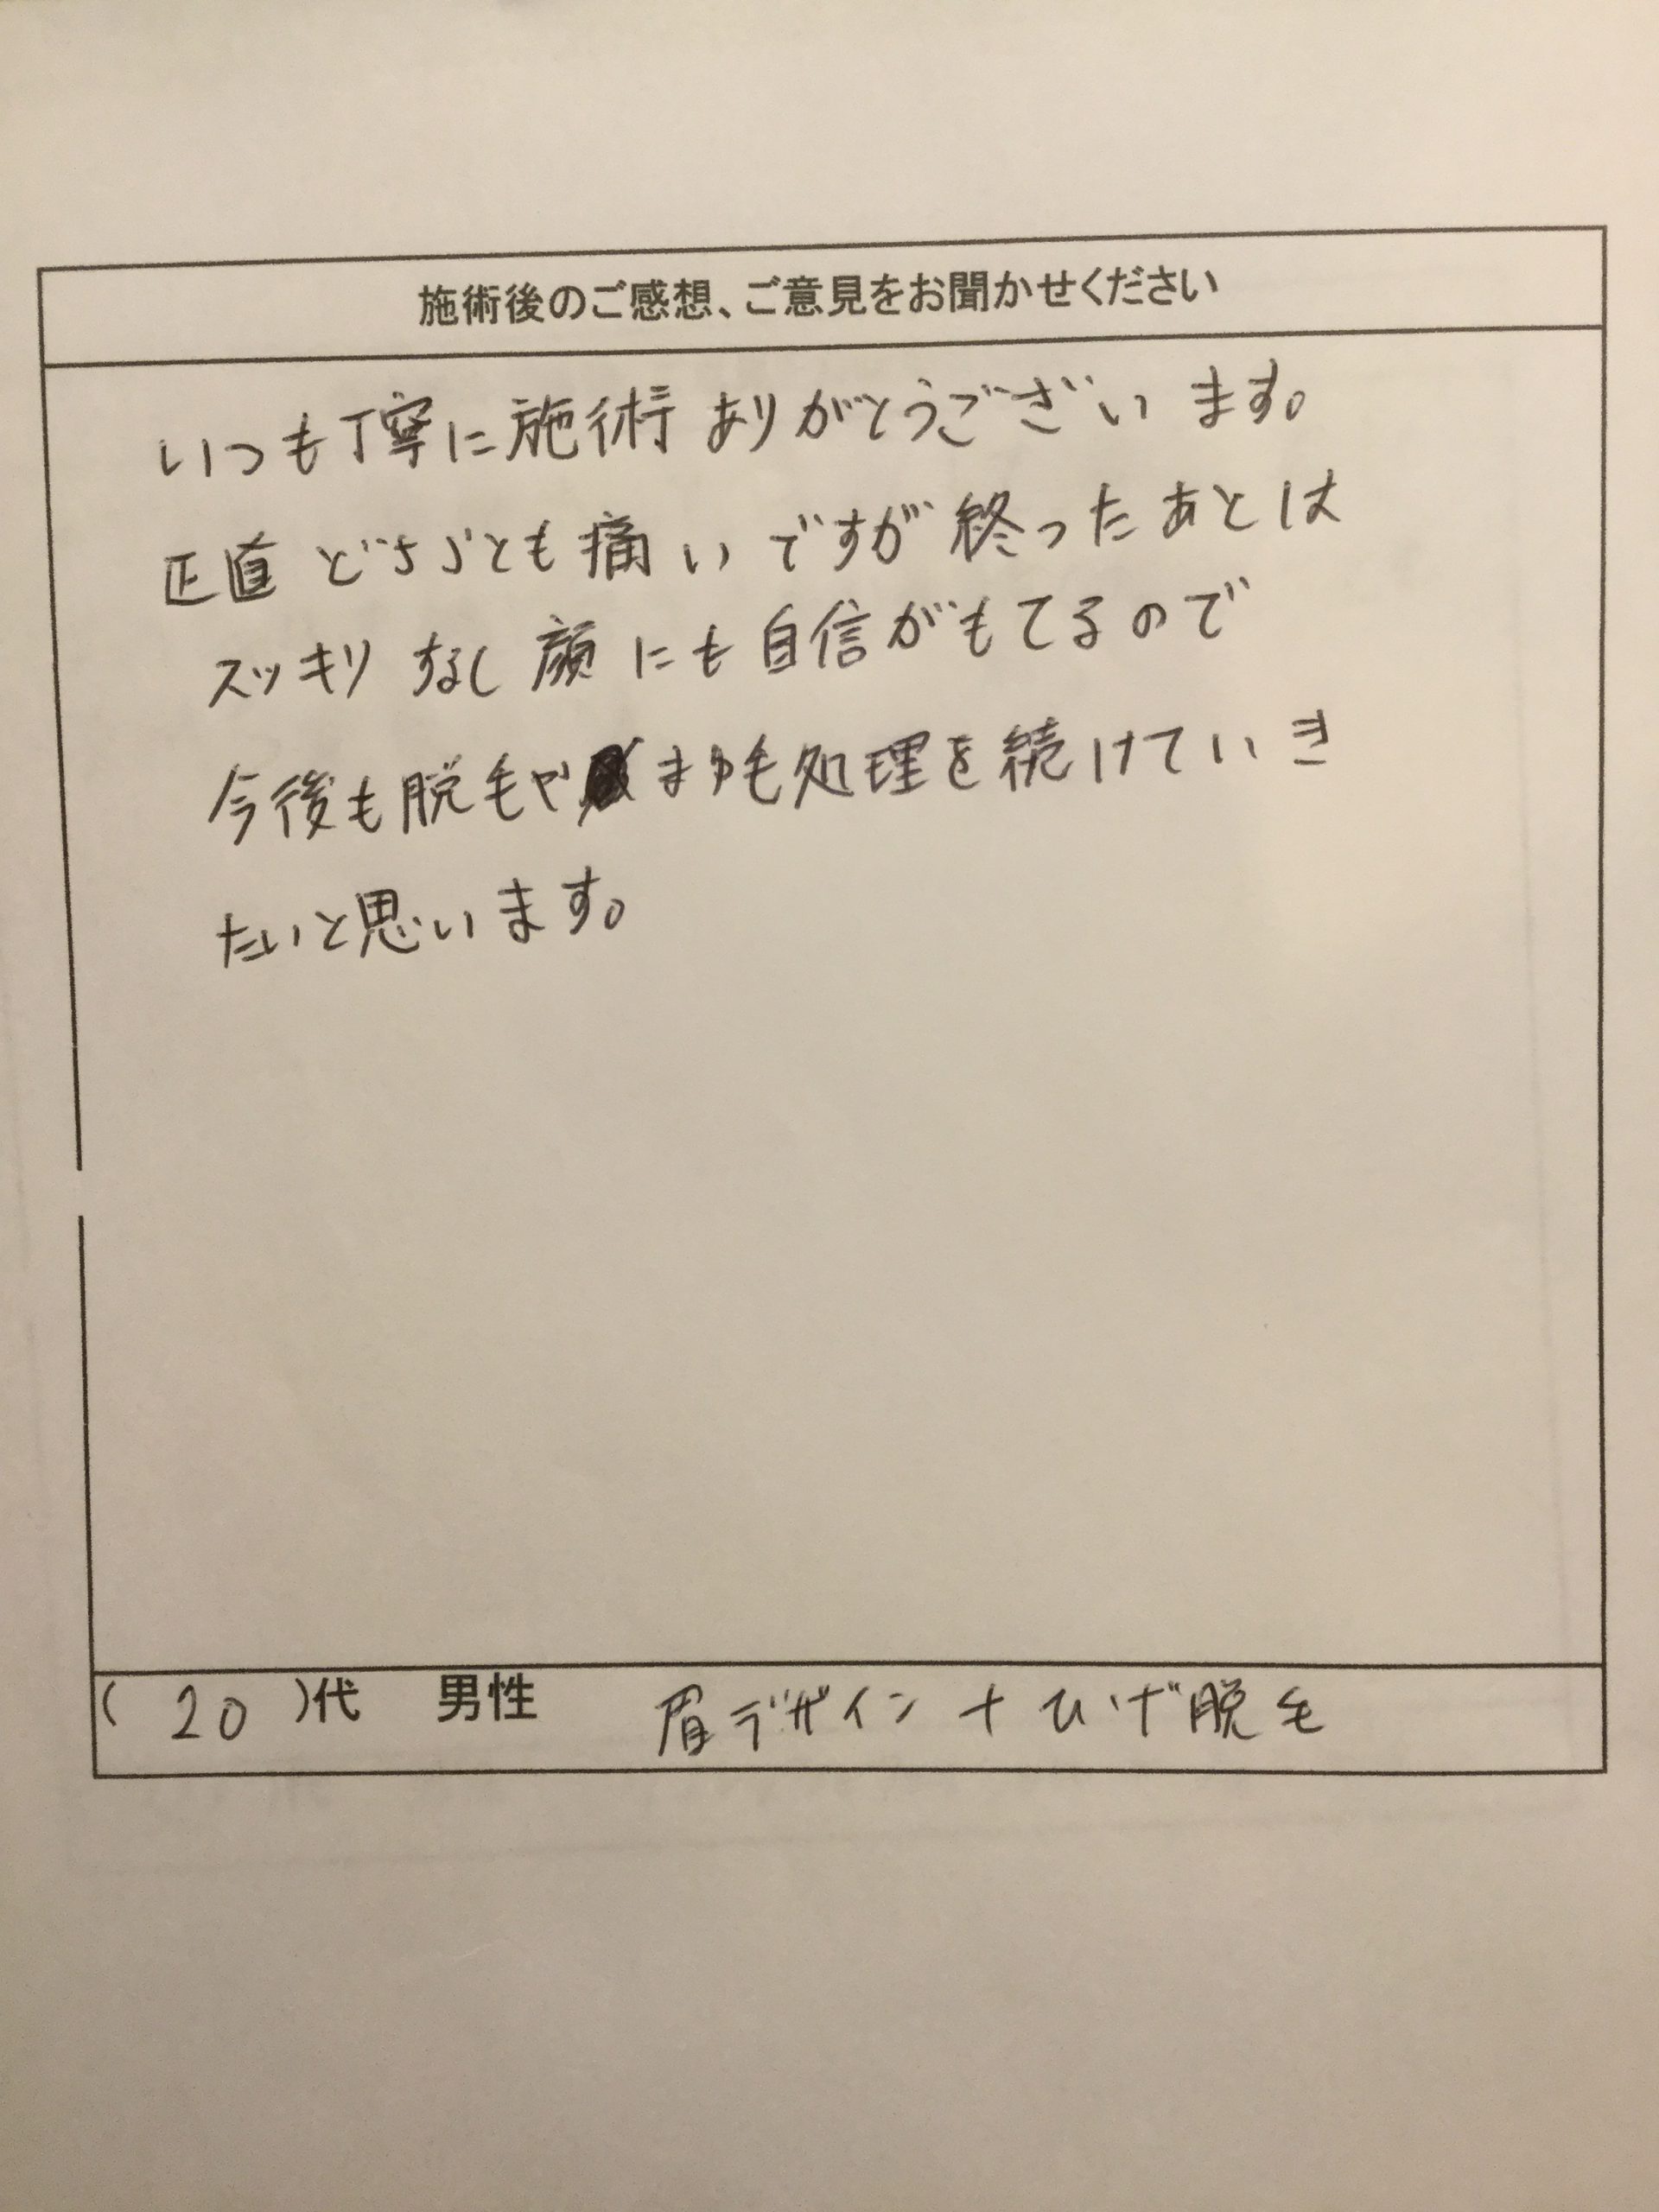 施術後のご感想、ご意見をお聞かせください
いつも丁寧に施術ありがとうございます。
正直どちらとも痛いですが終ったあとは
スッキリなし顔にも自信がもてるので
今後も脱毛やまゆ毛処理を続けていき
たいと思います。
( 20 )代 男性 眉デザイン+ひげ脱毛